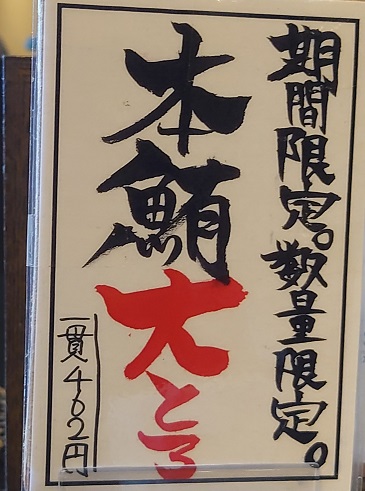 期間限定。数量限定。
本鮪大とろ
一貫402円